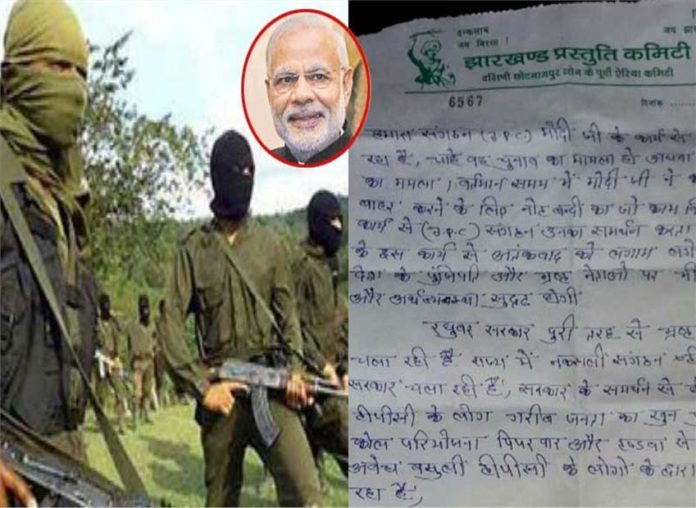 इन्कलाब
जय बिरसा !
जय झार
झारखण्ड प्रस्तुति कमिटी
दक्षिणी छोटानागपुर जोन के पूर्वी ऐरिया कमिटी
6567
दिनांक
हमारा संगठन (J.P.C) मोदी जी के कार्य से
रहा है, चाहे वह चुनाव का मामला हो अथवा
का ममला । वर्तमान समय में मोदी जी ने क
बाहर करने के लिए नोट बन्दी का जो काम
कार्य से (J.P.C) संगठन उनका समर्थन करता
के इस कार्य से आतंकवाद को लगाम लग
देश के पुंजिपति और भ्रष्ट नेताओ पर भी
और अर्थव्यवस्था सुदृढ होगी
रघुवर सरकार पुरी तरह से भ्रष्ट
चला रही है राज्य में नक्सली संगठन
सरकार चला रही है, सरकार के समर्थन से
टीपीसी के लोग गरीब जनता का खुन
कोल परियोजना पिपरवार और से
अवैध वसुली टीपीसी के लोगो के द्वारा
रहा है,